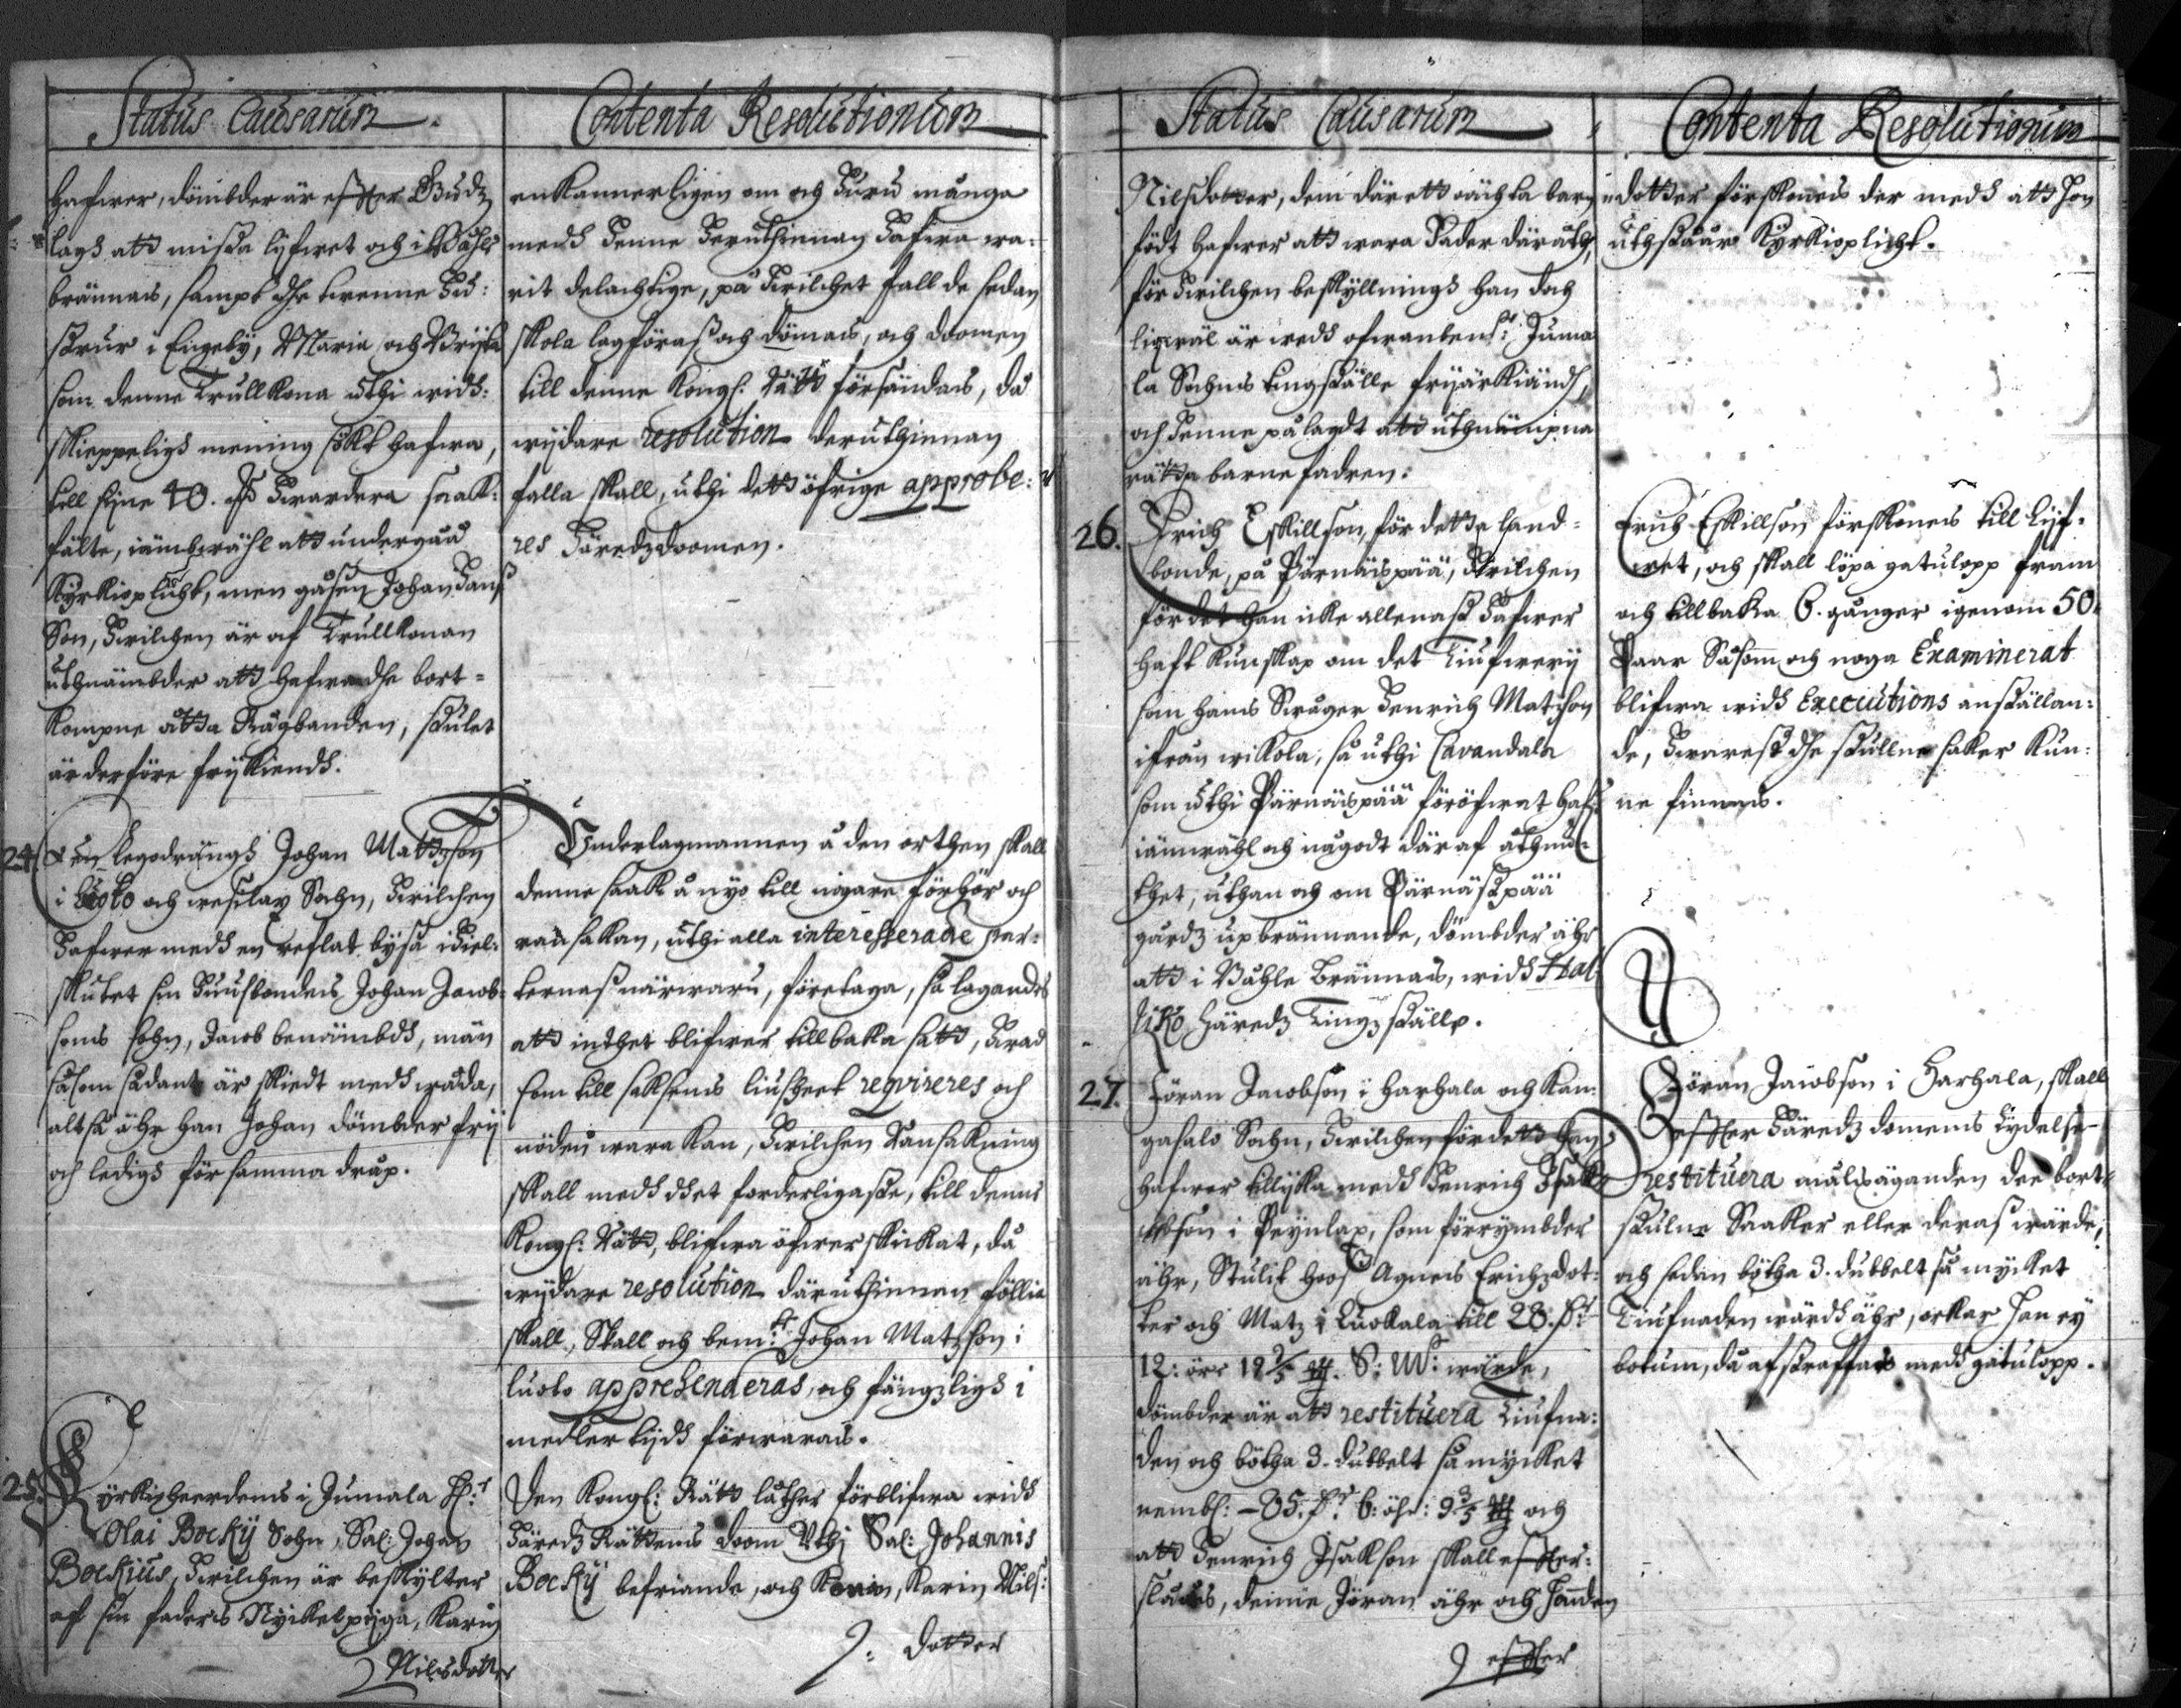 Status Causarum
hafwer, dömbder är effter Gudz
lagh att mista lijfwet och i Båhle
brännas, sampt dhe twenne Hu:
strur i Engeby, Maria och Brijta
som denne Trullkona uthi widh:
skieppeligh mening sökt hafwa,
till sine 40. hwardera saak:
fälte, iämbwähl att undergåå
Kyrkioplicht, men gåsen Johan Hanß
Son, hwilchen är af Trullkonan
uthnämbder att hafwa dhe bort-
kompne åtta Rågbanden, stulet
är derföre frijkiendh.
24. Een legodrängh Johan Matzson
i Luoto och wesilax Sochn, hwilchen
hafwer medh en reflat byßa ihiel:
skutet sin huusbondes Johan Jacob:
sons sohn, Jacob benämbdh, män
såsom sådant är skiedt medh wåda,
altså ähr han Johan dömbder frij
och ledigh för samma dråp.
25. Kyrkioheerdens i Jumala Hr
Olai Bocky Sohn, Sal: Johan
Bockius, hwilchen är beskylter
af sin faders Nyckelpiga, Karin
Nilsdotter
Contenta Resolutionum
enkannerligen om och huru många
medh denne deruthinnan hafwa wa:
rit delachtige, på hwilchet fall de sedan
skola lagföras och dömas, och doomen
till denne Kongl: Rätt försändas, då
wydare resolution deruthinnan
falla skall, uthi dett öfrige approbe:
res Häredzdoomen.
Underlagmannen å den orthen skall
denne saak å nyo till nogare förhör och
ransakan, uthi alla interesserade par:
ternas närwaru, företaga, så lagandes
att inthet blifwer tillbaka satt, hwad
som till saksens liusheet reqvireres och
nöden wara kan, hwilchen Ransakning
skall medh dhet forderligaste, till denne
Kongl: Rätt, blifwa öfwerskickat, då
wydare resolution däruthinnanföllia
skall, Skall och bem:t Johan Matzson i
luoto apprehenderas, och fängzligh i
medler tijdh förwaras.
Den Kongl: Rätt låther förblifwa widh
Häredz Rättens doom Uthi Sal: Johannis
Bocky befriande, och Karin Nils:
dotter
Status Causarum
Nilsdotter, dem därett oächta barn
födt hafwer att wara fader däråth,
för hwilchen beskyllningh han doch
lijkwäl är wedh ofwanben:t Juma
la Sochns tingställe frijärkiändh,
och denne pålagdt att uthnämpna
rätta barnefadren.
26. Erich Eskillson, för detta land-
bonde, på Pärnäspää, hwilchen
för det han icke allenast hafwer
haft kunskap om det Tiufwerij
som hans Swåger Henrich Matzson
ifrån wikola, så uthi Lavandala
som uthi Pärnäspää föröfwat haf:
iämwähl och någodt däraf åthniu-
thet, uthan och om Pärnäspää
gårdz upbrännande, dömbder ähr
att i Båhle brännas, widh Hal
liko Häredz Tingzställe.
27. Jöran Jacobson i Harhala och Kan:
gasalo Sochn, hwilchen för dett han
hafwer tillijka medh Henrich Isak
son i Peynlax, som förrymbder
ähr, Stulit hoos Agnes Erichzdot:
ter och Matz i Luokala till 28. dr
12: öre 19 1/5 S: Mt wärde,
dömbder är att restituera Tiufna:
den och böta 3. dubbelt så mycket
nembl: 85. dr 6: öhr: 9 3/5 och
att Henrich Isakson skall effter:
slåås, denne Jöran ähr och händen
effter
Contenta Resolutionum
dotter förskones der medh att hon
uthstäår Kyrkioplicht.
Erich Eskillson förskones till lijf-
wet, och skall löpa gatulopp fram
och tillbaka 6. gånger igenom 50.
Paar Såsom och noga Examinerat
blifwa widh Executions anställan:
de, hwarest dhe stullne saker kun:
ne finnas.
Jöran Jacobson i Harhala, skall
effter Häredz domens lydelse
restituera målsäganden dee bort-
stulne Saaker eller deras wärde,
och sedan böta 3. dubbelt så mycket
Tiufnaden wärdh ähr, orkar han ey
botum, då afstraffas medh gatulopp.